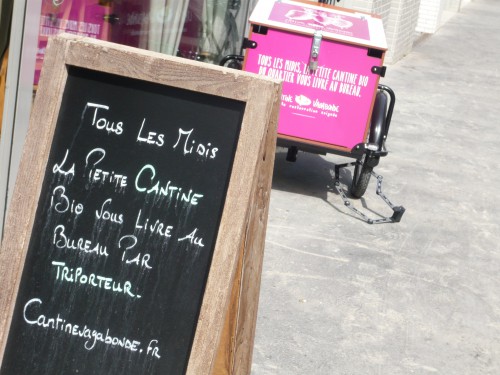 Tous Les Midis
La Petite Cantine
Bio Vous Livre Au
Bureau Par
Triporteur.
Cantinevagabonde.fr
TOUS LES MIDIS, LA PETITE CANTINE BIO
DU QUARTIER VOUS LIVRE AU BUREAU.